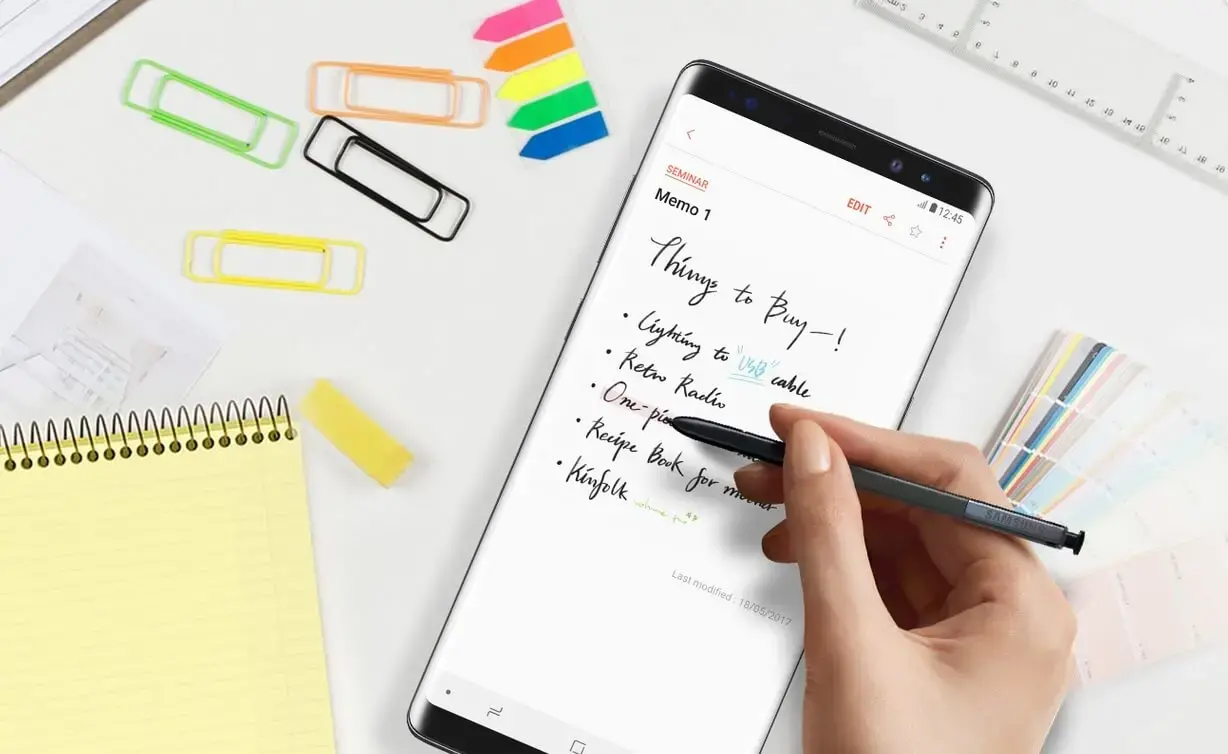 12:45
SEMINAR
EDIT
Memo 1
Things to Buy—!
• Lighting to "USB" cable
• Retro Radio
• Recipe Book for mother
• Kinfolk volume
Last modified : 18/05/2017
SAMSUNG